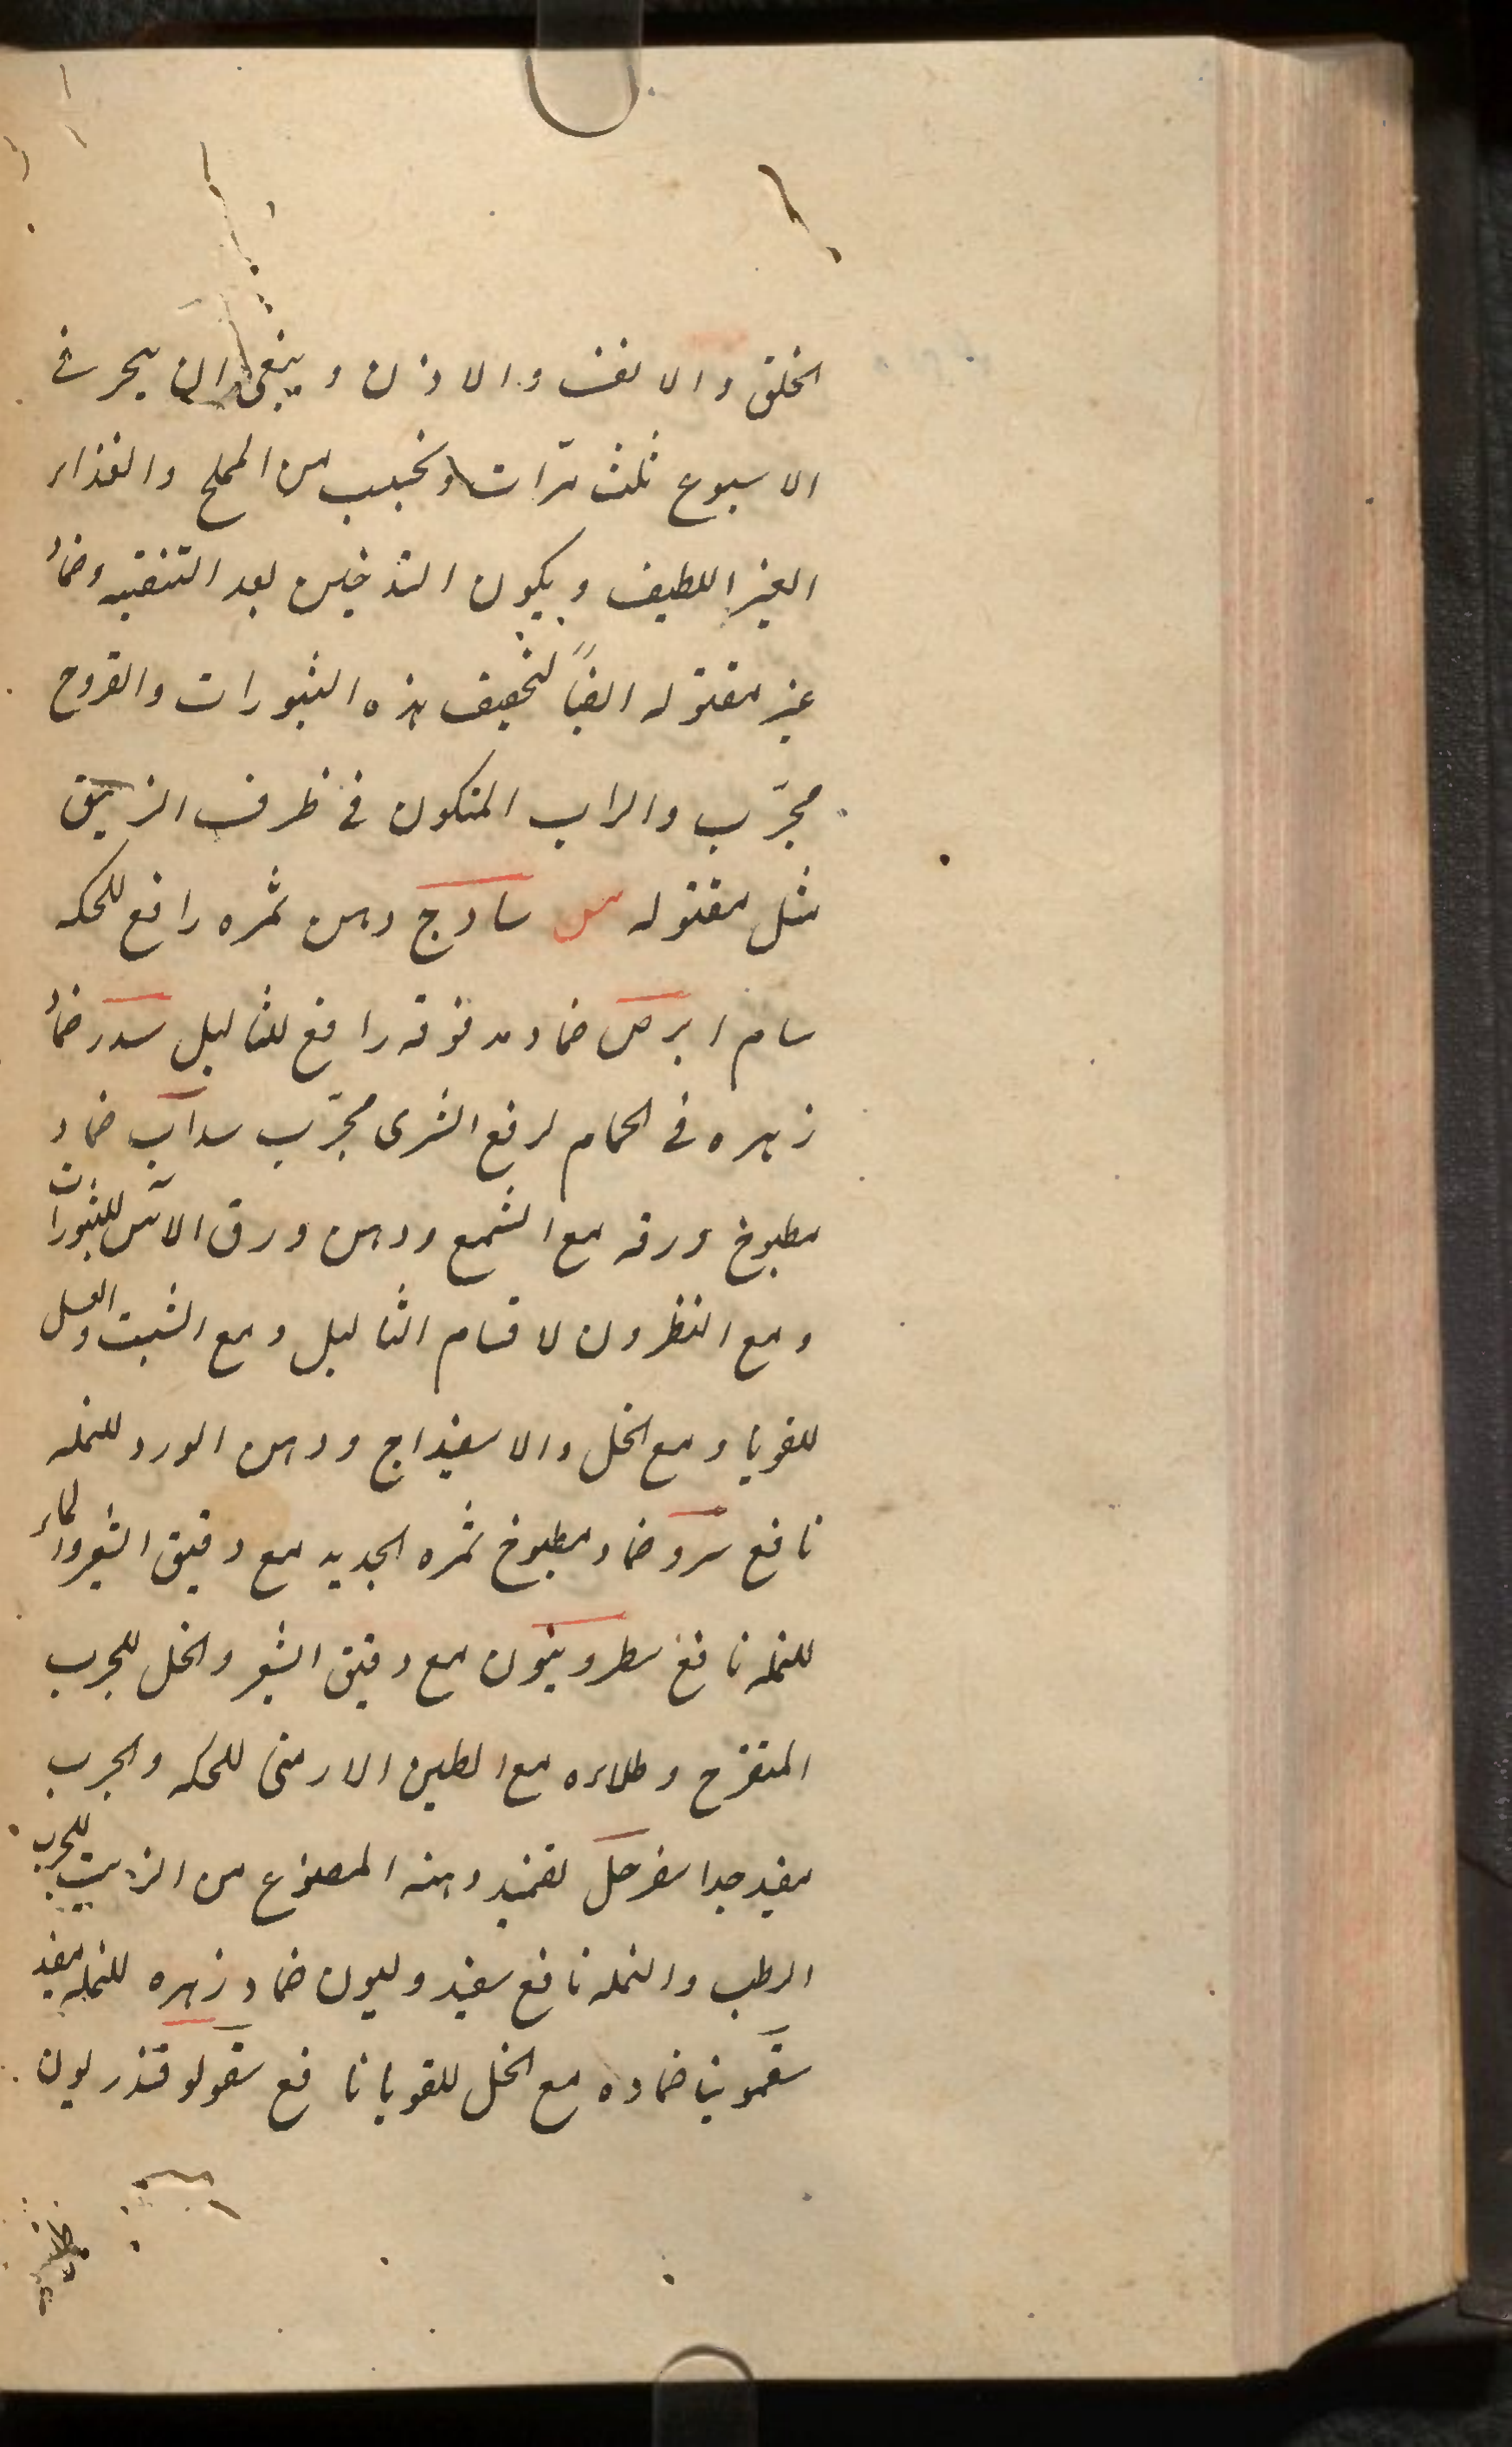 الحلق والانف والاذن وينبغی ان یبخر فی
الاسبوع ثلث مرّات ویجتنب من المملح والغذاء
الغیر اللطیف ویکون التدخین بعد التنقیه وضماد
غیر مقتوله ایضاً لتجفیف هذه البثورات والقروح
مجرّب والراب المتکون فی ظرف الزیبق
مثل مقتوله س ساذج دهن ثمره رافع للحکه
سام ابرص ضماد مدقوقه رافع للثالیل سدر ضماد
زهره فی الحمام لرفع الشری مجرّب سداب ضماد
مطبوخ ورقه مع الشمع ودهن ورق الآس للبثورات
ومع النطرون لاقسام الثالیل ومع الشبت والعسل
للقوبا ومع الخل والاسفیداج ودهن الورد للنمله
نافع سرو ضماد مطبوخ ثمره الجدید مع دقیق الشعیر والماء
للنمله نافع سطرونیون مع دقیق الشعیر والخل للجرب
المتقرح وطلاءه مع الطین الارمنی للحکه والجرب
مفید جدا سفرجل تضمید دهنه المصنوع من الزیت للجرب
الرطب والنمله نافع سفیددولیون ضماد زهره للنمله مفید
سقمونیا ضماده مع الخل للقوبا نافع سقولوقندریون